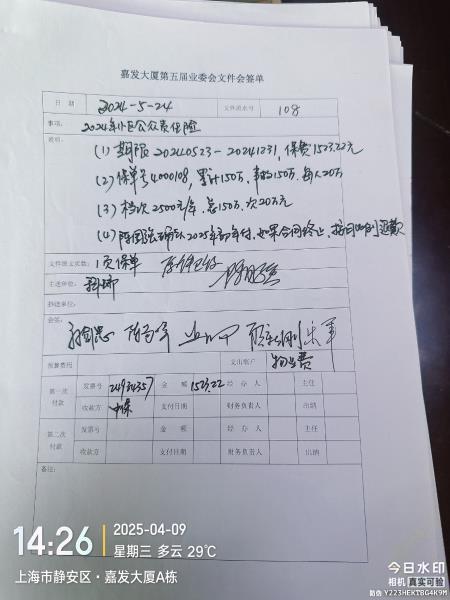 嘉发大厦第五届业委会文件会签单
日 期 2024-5-24 文件流水号 108
事项: 2024年小区公众责任险
说明:
(1) 期限 20240523-20241231, 保费1523.22元
(2) 保单号4000108, 累计150万, 事故150万, 每人20万
(3) 档次2500元/年, 总150万, 次20万元
(4) 陈国强确认2025年初年付, 如果合同终止, 按同比例退款
文件原文页数: 1页 保单
主送单位:
抄送单位:
会签:
预算费用 支出账户 物业费
第一次付款 发票号 24934357 金 额 1523.22 经 办 人 主任
收款方 中保 支付日期 财务负责人 出纳
第二次付款 发票号 金 额 经 办 人 主任
收款方 支付日期 财务负责人 出纳
备注:
14:26 2025-04-09
星期三 多云 29℃
上海市静安区·嘉发大厦A栋
今日水印
相机 真实可验
防伪 Y223HEKTBG4K9M